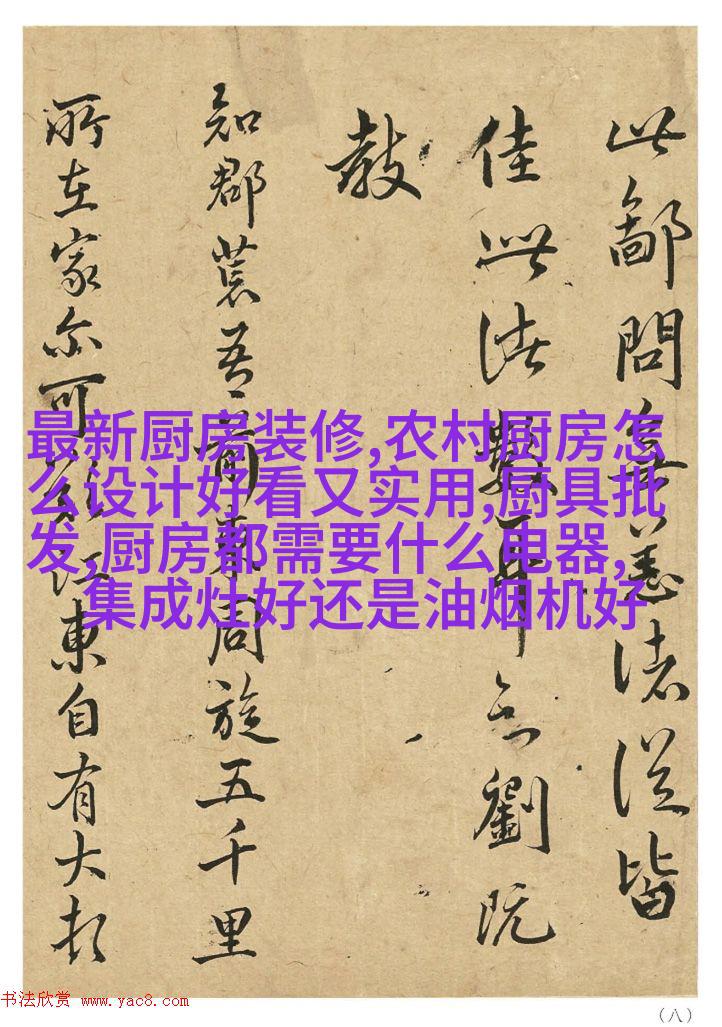 此鄙問無恙諸從皆
佳此諸數耳劉既
教
知郡荒吾東周旋五千里
所在家尓可江東自有大頓
最新厨房装修,农村厨房怎
么设计好看又实用,厨具批
发,厨房都需要什么电器,
集成灶好还是油烟机好
书法欣赏 www.yac8.com
(八)